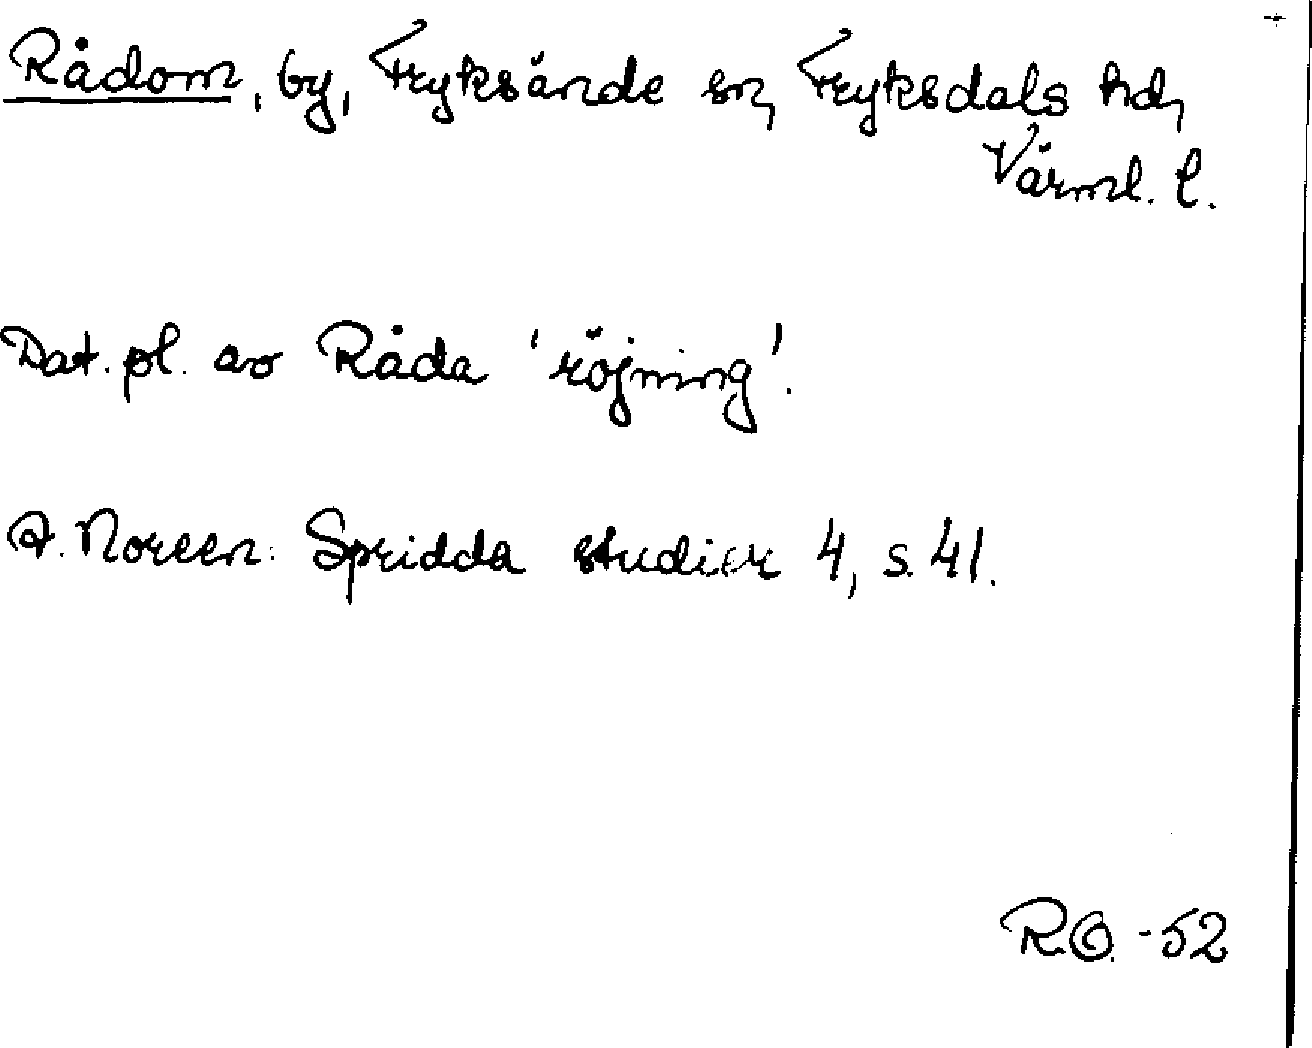 Rådom, by, Fryksände sn, Fryksdals hd,
Värml. l.
Dat. pl. av Råda 'röjning'.
A. Noreen: Spridda studier 4, s. 41.
R.O. -52